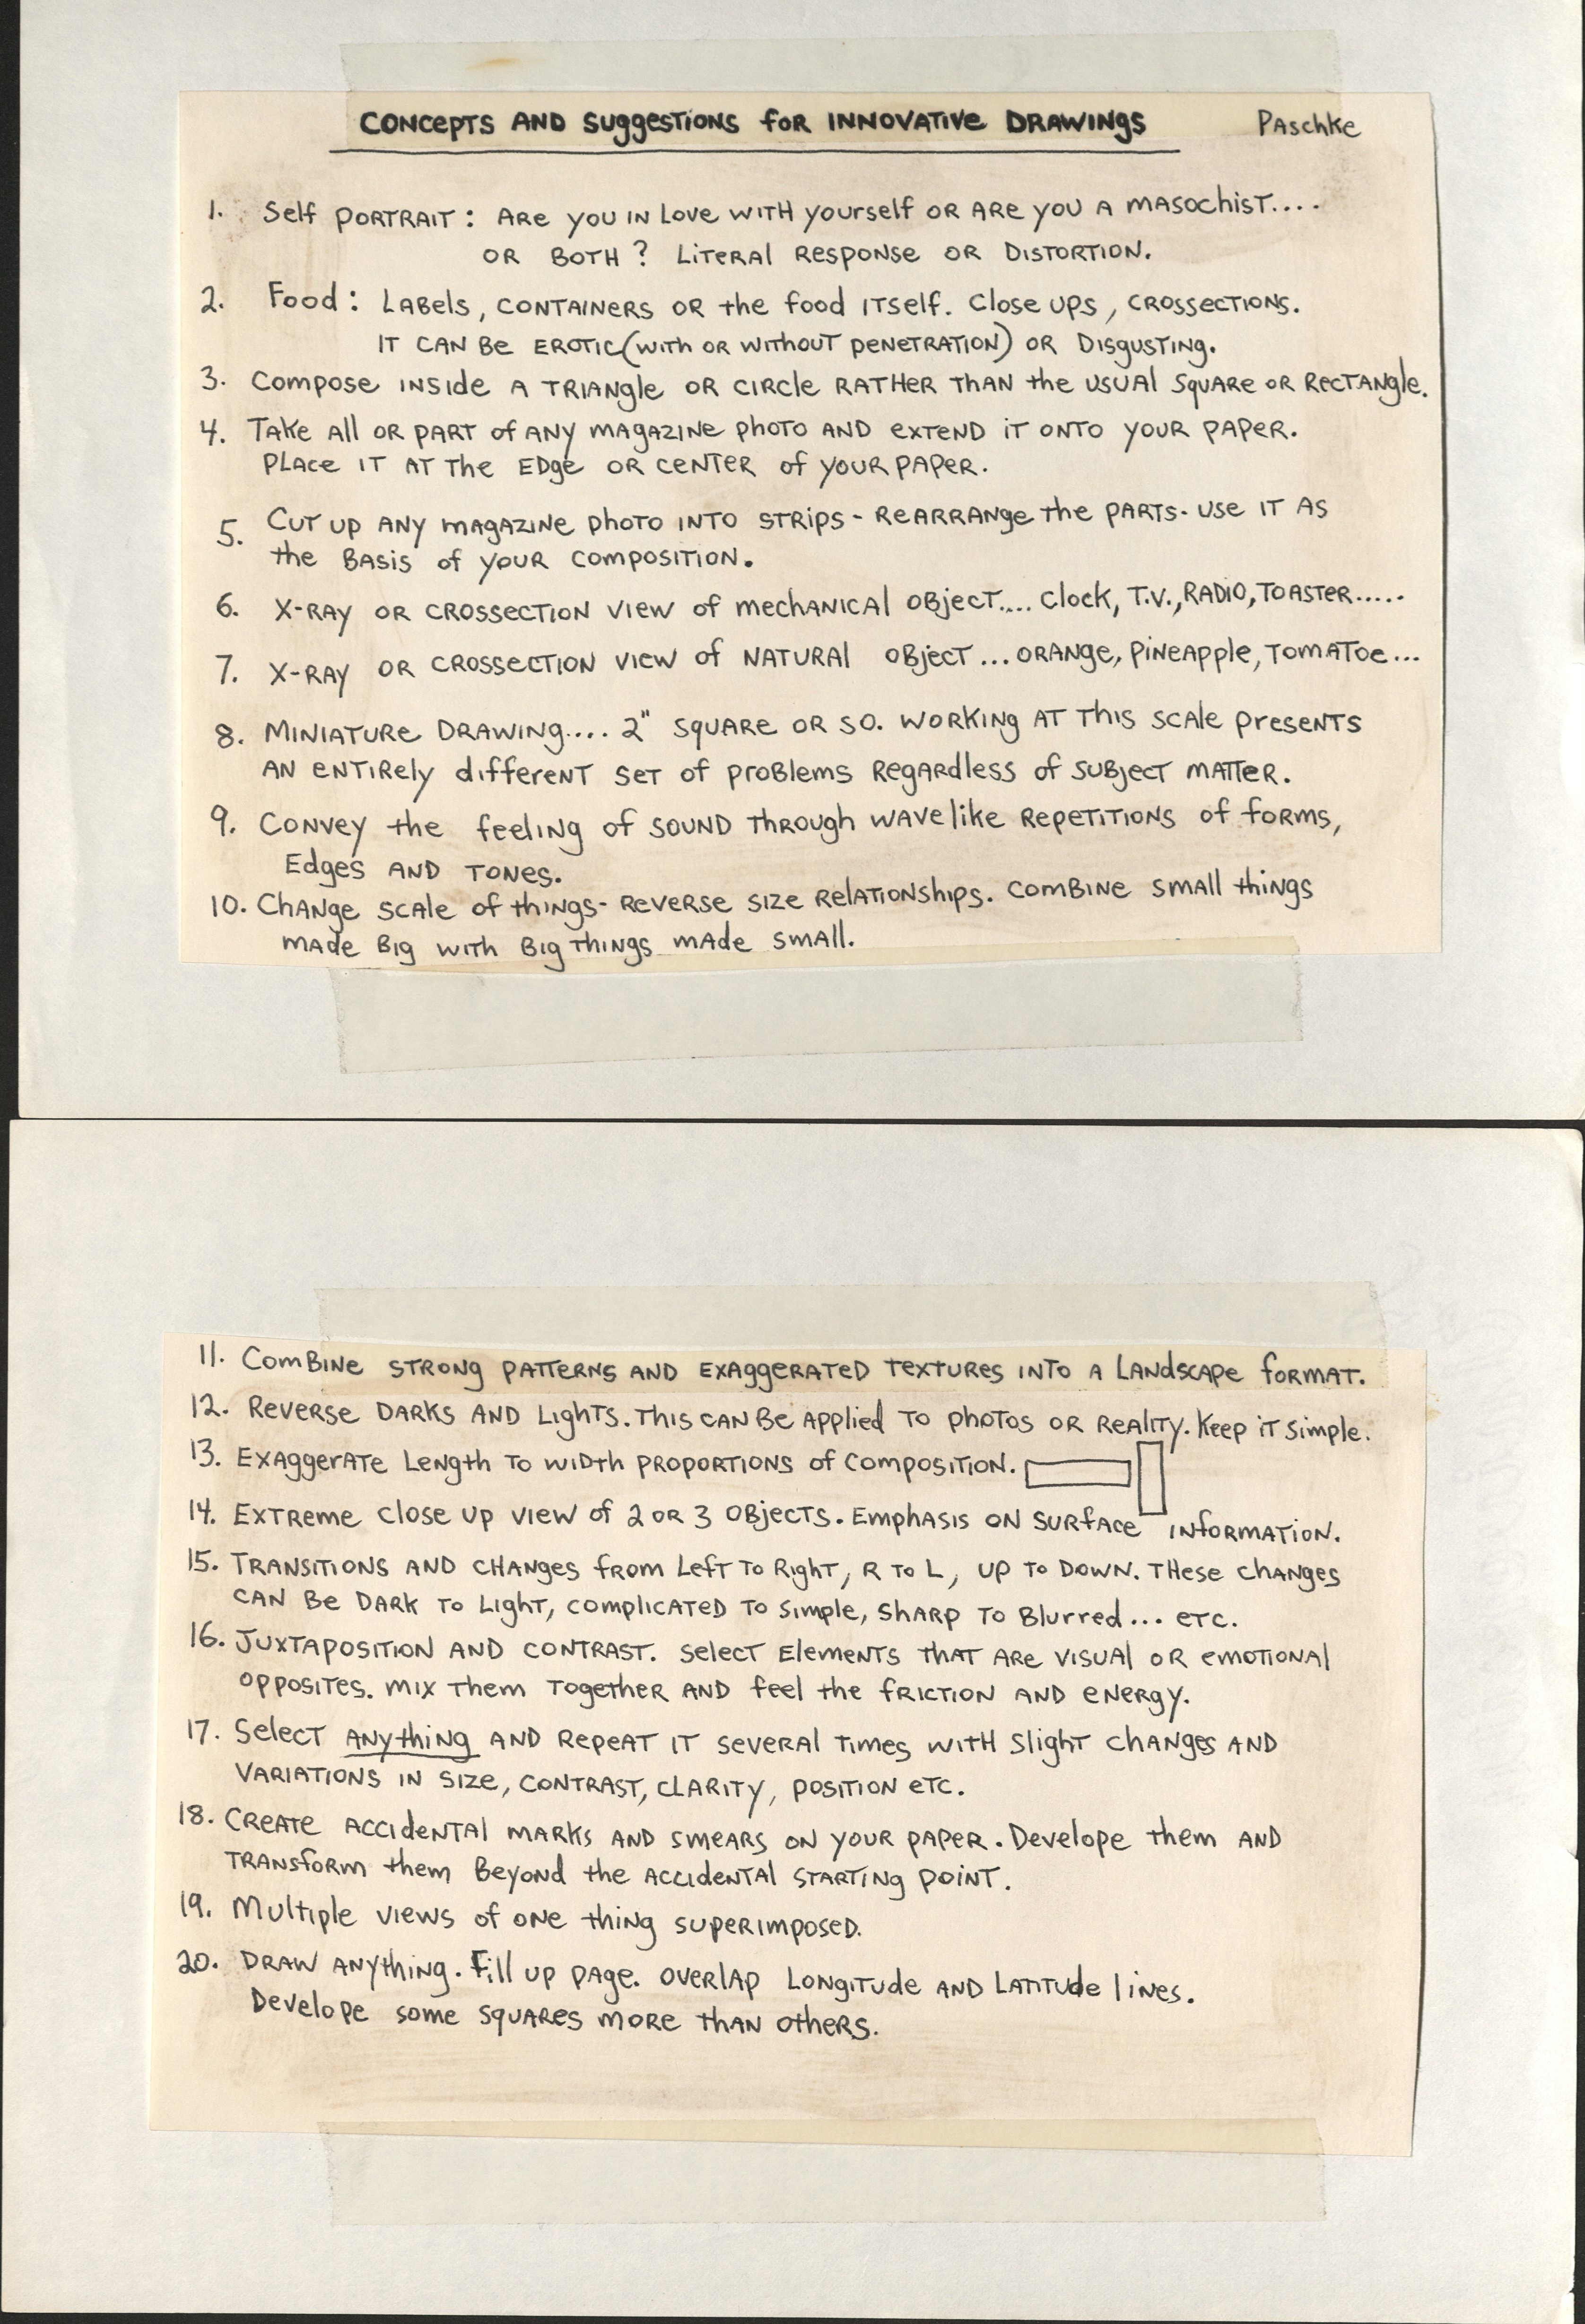 CONCEPTS AND SUGGESTIONS FOR INNOVATIVE DRAWINGS PASCHKE
1. SELF PORTRAIT: ARE YOU IN LOVE WITH YOURSELF OR ARE YOU A MASOCHIST....
OR BOTH? LITERAL RESPONSE OR DISTORTION.
2. FOOD: LABELS, CONTAINERS OR THE FOOD ITSELF. CLOSE UPS, CROSSECTIONS.
IT CAN BE EROTIC (WITH OR WITHOUT PENETRATION) OR DISGUSTING.
3. COMPOSE INSIDE A TRIANGLE OR CIRCLE RATHER THAN THE USUAL SQUARE OR RECTANGLE.
4. TAKE ALL OR PART OF ANY MAGAZINE PHOTO AND EXTEND IT ONTO YOUR PAPER.
PLACE IT AT THE EDGE OR CENTER OF YOUR PAPER.
5. CUT UP ANY MAGAZINE PHOTO INTO STRIPS - REARRANGE THE PARTS - USE IT AS
THE BASIS OF YOUR COMPOSITION.
6. X-RAY OR CROSSECTION VIEW OF MECHANICAL OBJECT.... CLOCK, T.V., RADIO, TOASTER.....
7. X-RAY OR CROSSECTION VIEW OF NATURAL OBJECT... ORANGE, PINEAPPLE, TOMATOE...
8. MINIATURE DRAWING.... 2" SQUARE OR SO. WORKING AT THIS SCALE PRESENTS
AN ENTIRELY DIFFERENT SET OF PROBLEMS REGARDLESS OF SUBJECT MATTER.
9. CONVEY THE FEELING OF SOUND THROUGH WAVELIKE REPETITIONS OF FORMS,
EDGES AND TONES.
10. CHANGE SCALE OF THINGS - REVERSE SIZE RELATIONSHIPS. COMBINE SMALL THINGS
MADE BIG WITH BIG THINGS MADE SMALL.
11. COMBINE STRONG PATTERNS AND EXAGGERATED TEXTURES INTO A LANDSCAPE FORMAT.
12. REVERSE DARKS AND LIGHTS. THIS CAN BE APPLIED TO PHOTOS OR REALITY. KEEP IT SIMPLE.
13. EXAGGERATE LENGTH TO WIDTH PROPORTIONS OF COMPOSITION.
14. EXTREME CLOSE UP VIEW OF 2 OR 3 OBJECTS. EMPHASIS ON SURFACE INFORMATION.
15. TRANSITIONS AND CHANGES FROM LEFT TO RIGHT, R TO L, UP TO DOWN. THESE CHANGES
CAN BE DARK TO LIGHT, COMPLICATED TO SIMPLE, SHARP TO BLURRED... ETC.
16. JUXTAPOSITION AND CONTRAST. SELECT ELEMENTS THAT ARE VISUAL OR EMOTIONAL
OPPOSITES. MIX THEM TOGETHER AND FEEL THE FRICTION AND ENERGY.
17. SELECT ANYTHING AND REPEAT IT SEVERAL TIMES WITH SLIGHT CHANGES AND
VARIATIONS IN SIZE, CONTRAST, CLARITY, POSITION ETC.
18. CREATE ACCIDENTAL MARKS AND SMEARS ON YOUR PAPER. DEVELOPE THEM AND
TRANSFORM THEM BEYOND THE ACCIDENTAL STARTING POINT.
19. MULTIPLE VIEWS OF ONE THING SUPERIMPOSED.
20. DRAW ANYTHING. FILL UP PAGE. OVERLAP LONGITUDE AND LATITUDE LINES.
DEVELOPE SOME SQUARES MORE THAN OTHERS.